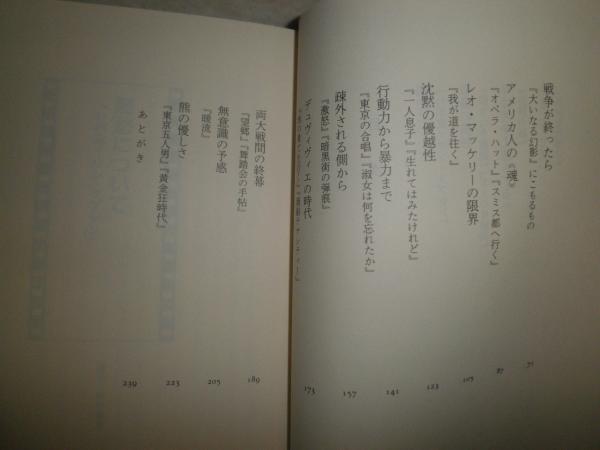 戦争が終ったら
『大いなる幻影』にこもるもの
71
アメリカ人の《魂》
『オペラ・ハット』『スミス都へ行く』
87
レオ・マッケリーの限界
『我が道を往く』
105
沈黙の優越性
『一人息子』『生れてはみたけれど』
123
行動力から暴力まで
『東京の合唱』『淑女は何を忘れたか』
141
疎外される側から
『激怒』『暗黒街の弾痕』
157
デュヴィヴィエの時代
173
両大戦間の終幕
『望郷』『舞踏会の手帖』
189
無意識の予感
『暖流』
205
熊の優しさ
『東京五人男』『黄金狂時代』
223
あとがき
239